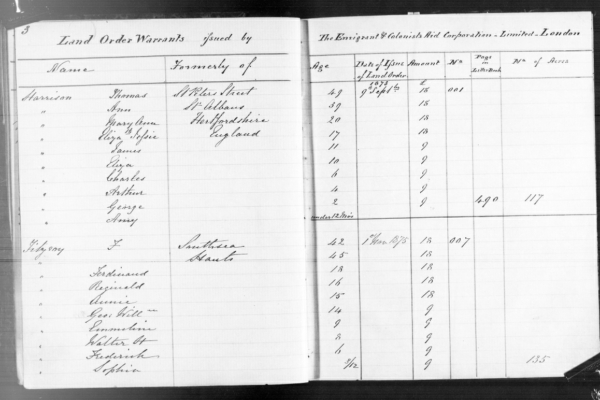 3
Land Order Warrants issued by The Emigrant & Colonists Aid Corporation - Limited - London
Name Formerly of Age Date of Issue of Land Order Amount No Page in Letter Book No of Acres
1874 £
Harrison Thomas St Peters Street 49 9th Septbr 18 001
" Ann St Albans 39 18
" Mary Ann Hertfordshire 20 18
" Eliza Jessie England 17 18
" James 11 9
" Eliza 10 9
" Charles 6 9
" Arthur 4 9
" George 2 9 490 117
" Amy under 12 Mos
Fitzroy F. Southsea 42 1875 18 007
" Hants 45 18
" Ferdinand 18 18
" Reginald 16 18
" Annie 15 18
" Geo: Willm 14 9
" Emmeline 9 9
" Walter H 8 9
" Frederick 6 9
" Sophia 9 135